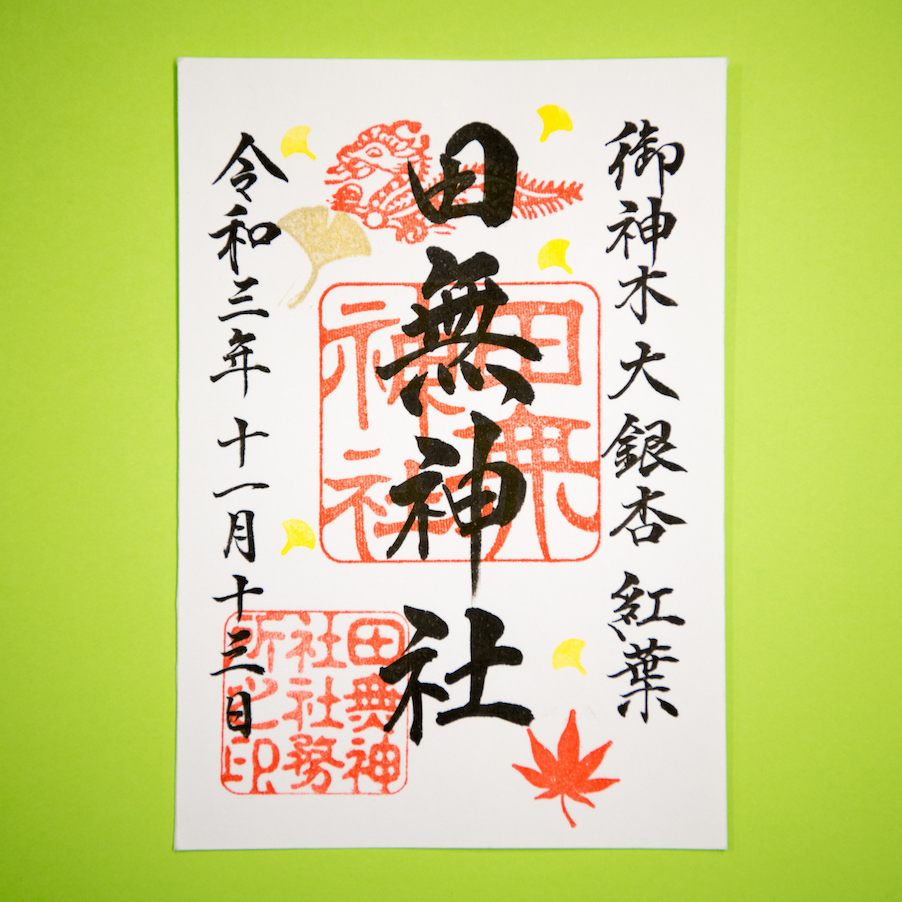 御神木 大銀杏 紅葉
田無神社
令和三年 十一月十三日
田無神社
田無神社社務所之印